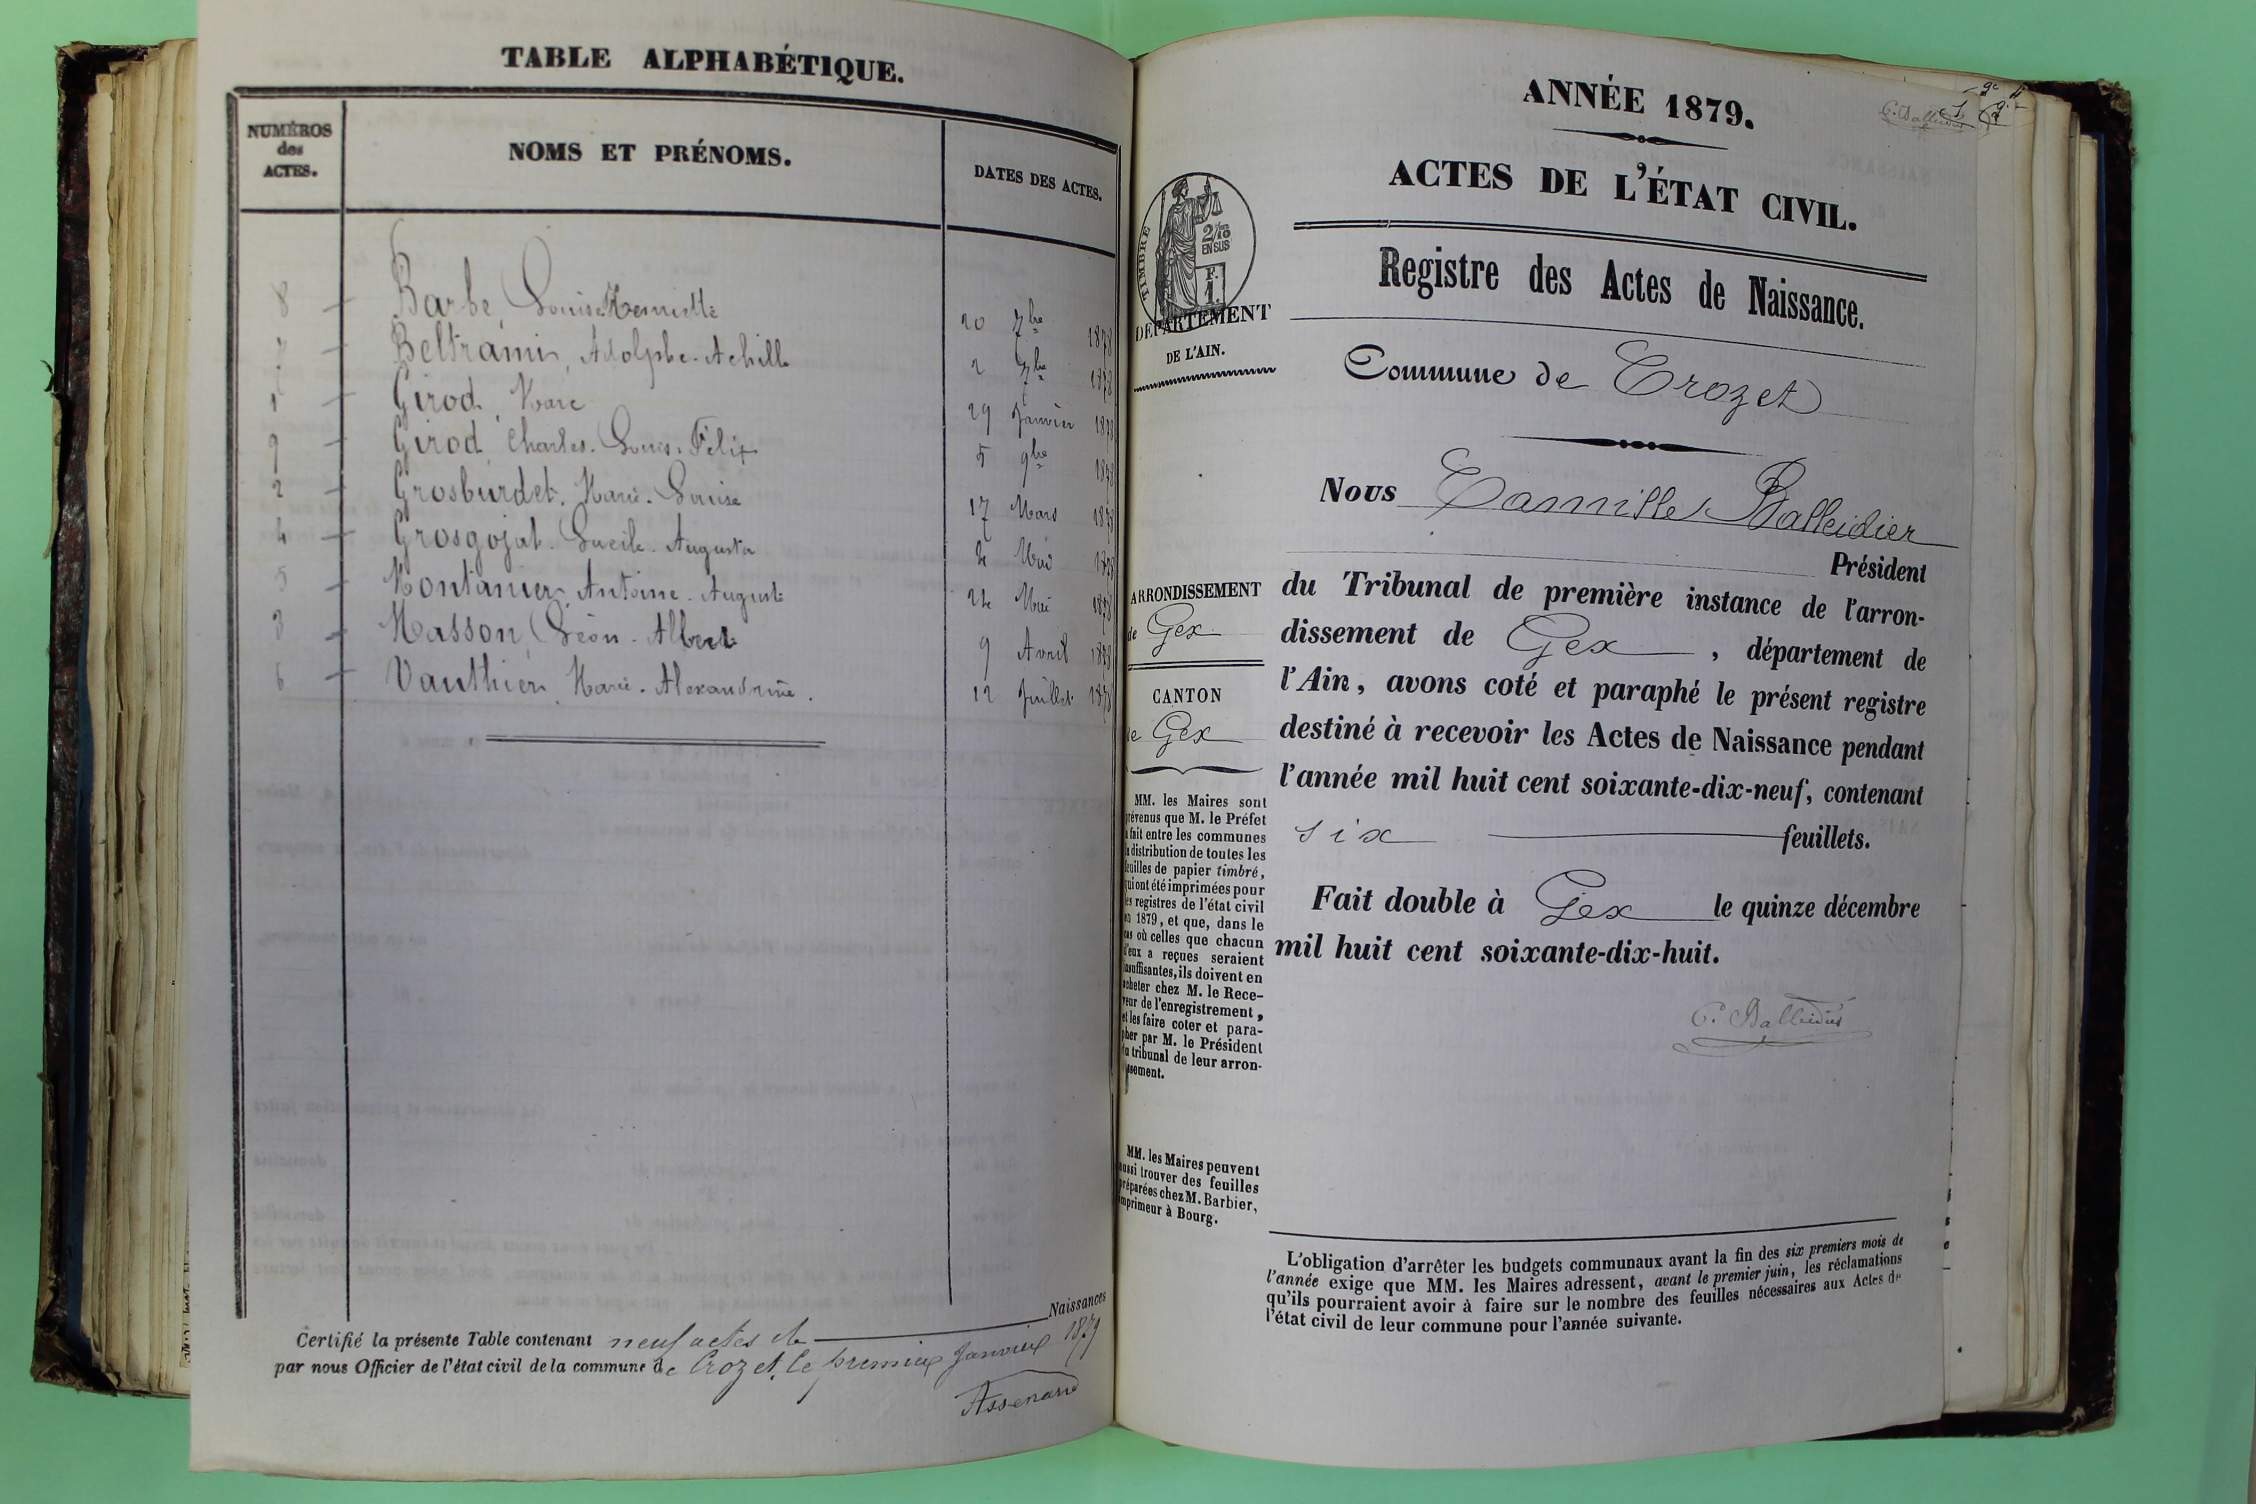 TABLE ALPHABÉTIQUE.
NUMÉROS des ACTES.
NOMS ET PRÉNOMS.
DATES DES ACTES.
8 — Barbe, Louise Henriette 20 7bre 1878
7 — Beltrami, Adolphe-Achille 2 7bre 1878
1 — Girod, Marc 29 Janvier 1878
9 — Girod, Charles-Louis-Félix 5 9bre 1878
2 — Grosburdet, Marie-Louise 17 Mars 1878
4 — Grosgojat, Lucile-Augusta Mai 1878
5 — Montanier, Antoine-Auguste 24 Mai 1878
3 — Masson, Léon-Albert 9 Avril 1878
6 — Vauthier, Marie-Alexandrine. 12 Juillet 1878
Certifié la présente Table contenant neuf actes de Naissances
par nous Officier de l'état civil de la commune de Crozet, le premier Janvier 1879
Assenard
C. Balleidier
ANNÉE 1879.
ACTES DE L'ÉTAT CIVIL.
TIMBRE
2/10
EN SUS
F.
1.
DÉPARTEMENT
DE L'AIN.
Registre des Actes de Naissance.
Commune de Crozet
Nous Camille Balleidier
Président
du Tribunal de première instance de l'arron-
dissement de Gex, département de
l'Ain, avons coté et paraphé le présent registre
destiné à recevoir les Actes de Naissance pendant
l'année mil huit cent soixante-dix-neuf, contenant
six feuillets.
Fait double à Gex le quinze décembre
mil huit cent soixante-dix-huit.
C. Balleidier
ARRONDISSEMENT
de Gex
CANTON
de Gex
MM. les Maires sont
prévenus que M. le Préfet
a fait entre les communes
la distribution de toutes les
feuilles de papier timbré,
qui ont été imprimées pour
les registres de l'état civil
en 1879, et que, dans le
cas où celles que chacun
d'eux a reçues seraient
insuffisantes, ils doivent en
acheter chez M. le Rece-
veur de l'enregistrement,
et les faire coter et para-
pher par M. le Président
du tribunal de leur arron-
issement.
MM. les Maires peuvent
aussi trouver des feuilles
préparées chez M. Barbier,
imprimeur à Bourg.
L'obligation d'arrêter les budgets communaux avant la fin des six premiers mois de
l'année exige que MM. les Maires adressent, avant le premier juin, les réclamations
qu'ils pourraient avoir à faire sur le nombre des feuilles nécessaires aux Actes de
l'état civil de leur commune pour l'année suivante.